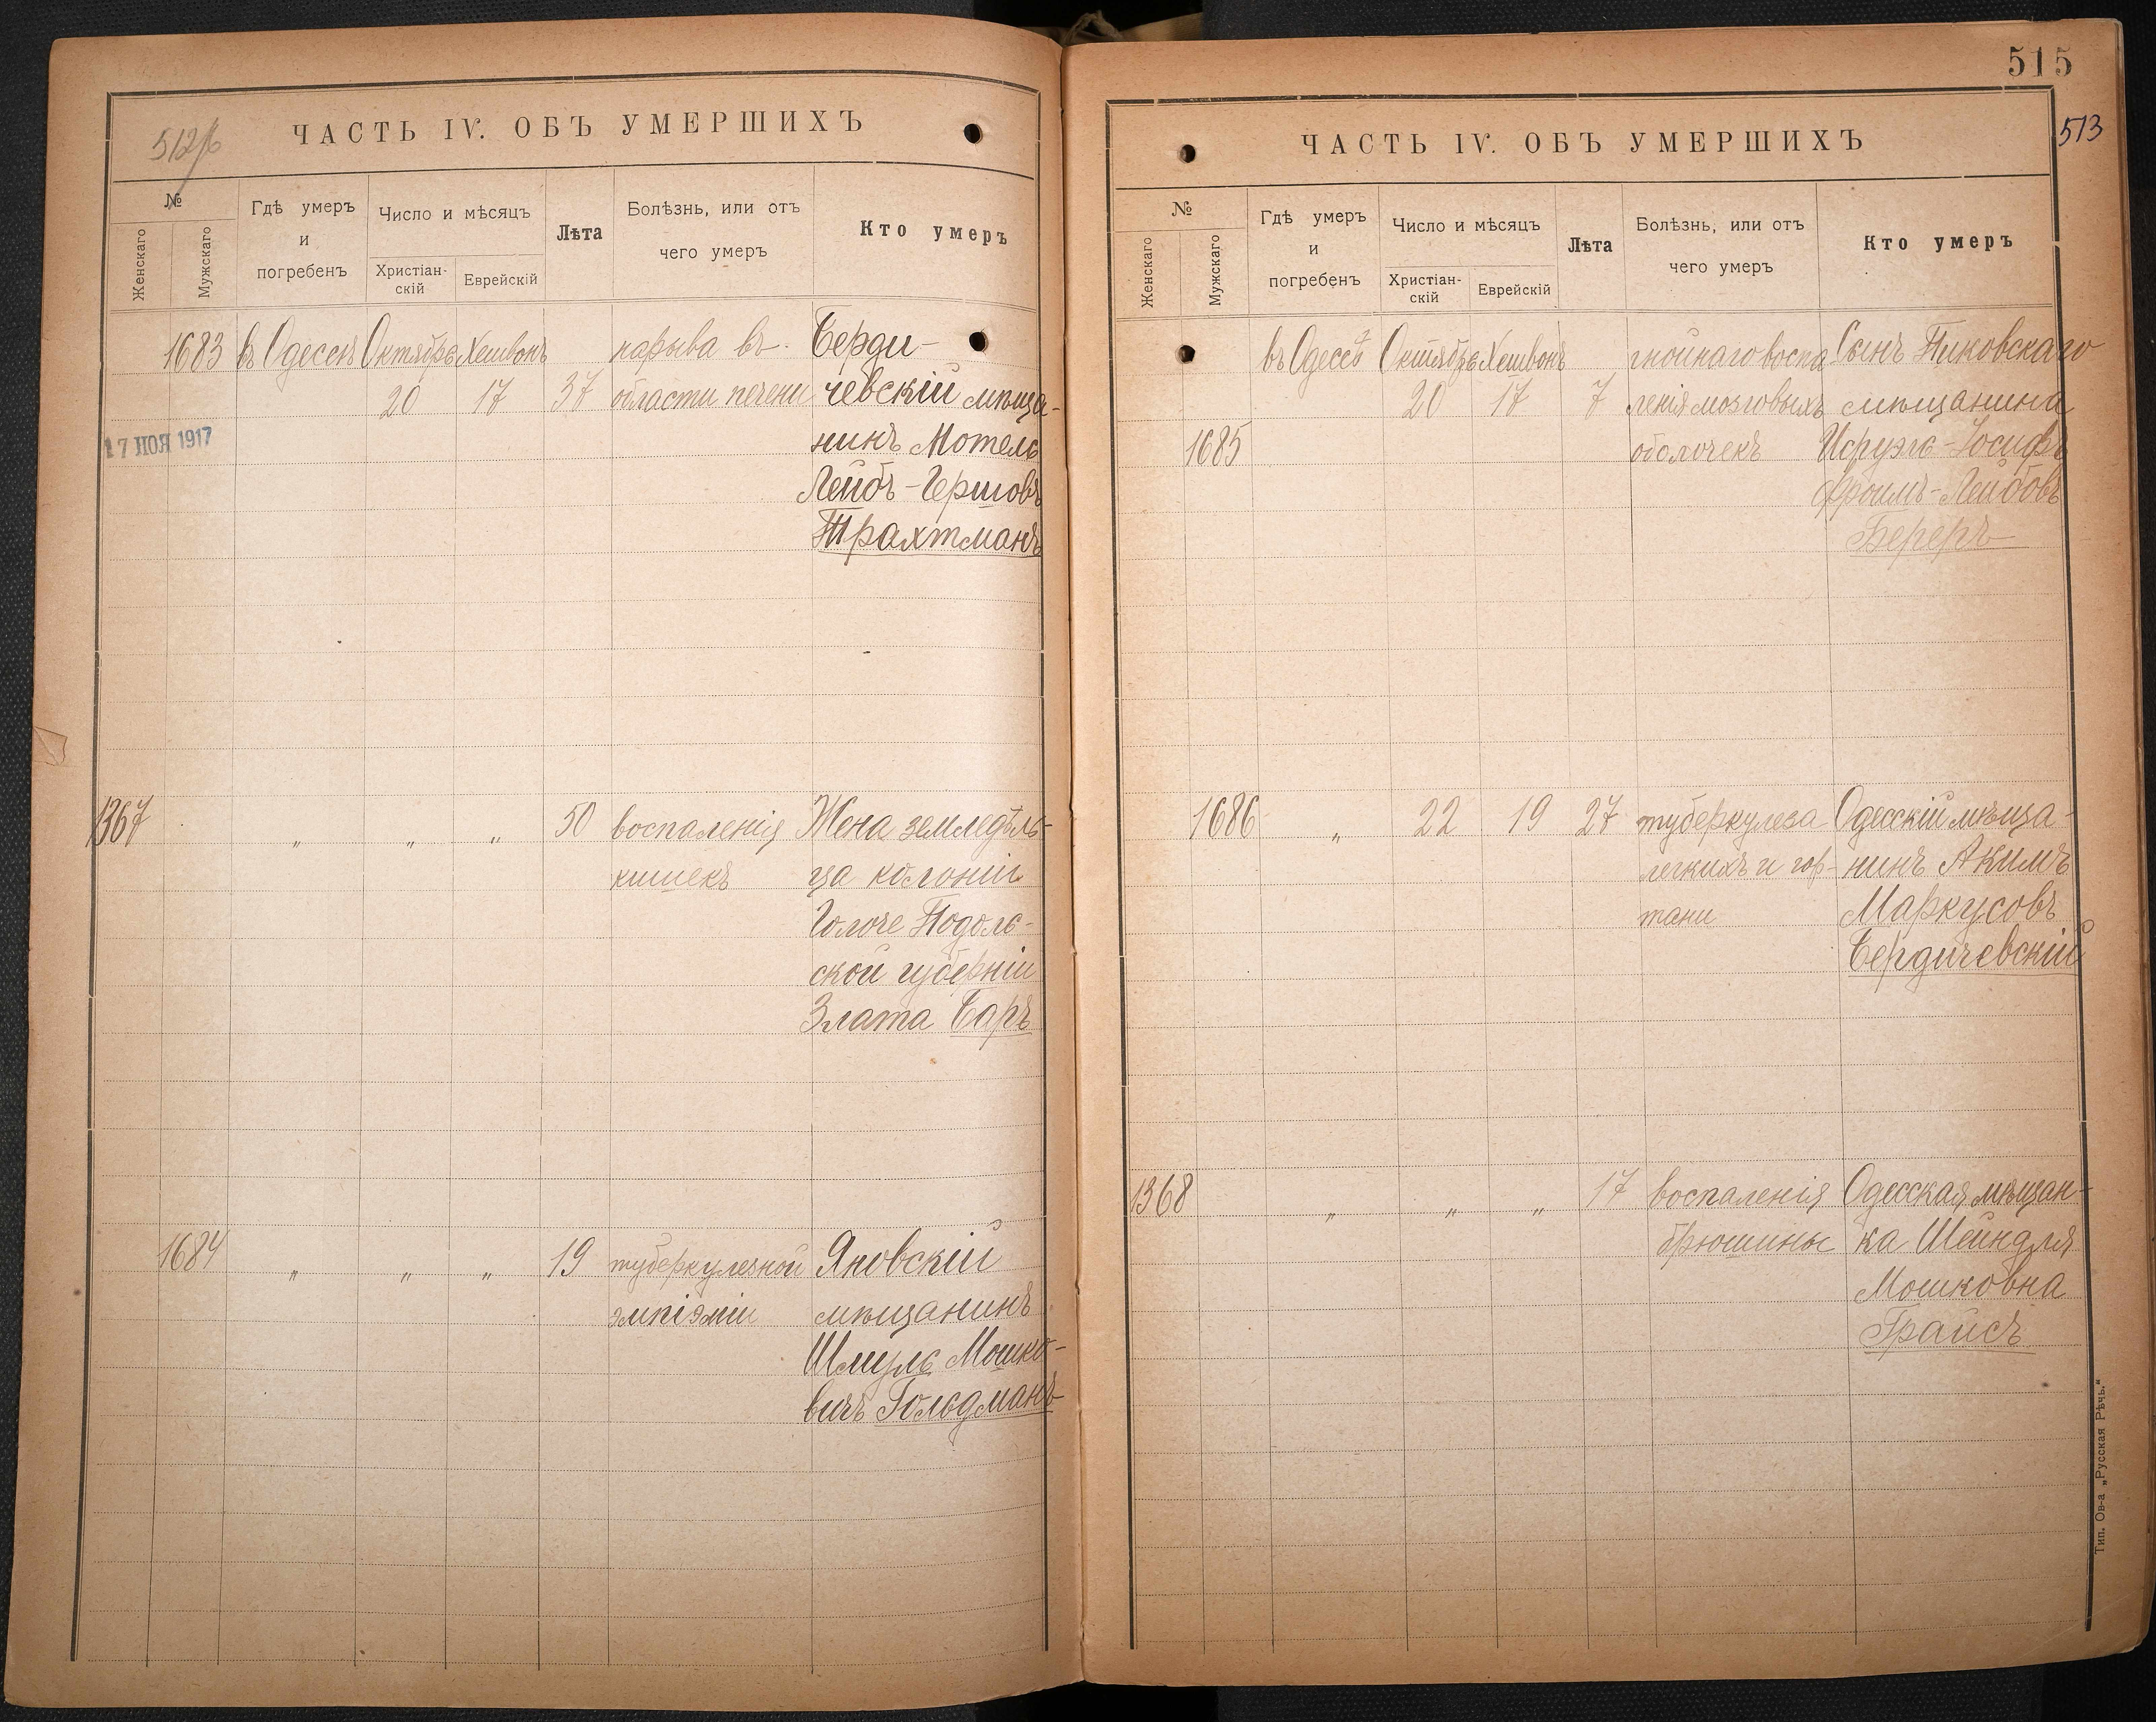 512/б
ЧАСТЬ IV. ОБЪ УМЕРШИХЪ
№
Женскаго
Мужскаго
Гдѣ умеръ
и
погребенъ
Число и мѣсяцъ
Христіан-
скій
Еврейскій
Лѣта
Болѣзнь, или отъ
чего умеръ
Кто умеръ
1683 въ Одессѣ Октябрь Хешвонъ нарыва въ Берди-
20 17 37 области печени чевскій мѣща-
17 НОЯ 1917
нинъ Мотель
Лейбъ-Гершовъ
Трахтманъ
1367 „ „ „ 50 воспаленія Жена земледѣль-
кишекъ ца колоніи
Голоче Подоль-
ской губерніи
Злата Баръ
1684 „ „ „ 19 туберкулезной Яновскій
эмпіэміи мѣщанинъ
Шмуль Мошко-
вичъ Гольдманъ
515
513
ЧАСТЬ IV. ОБЪ УМЕРШИХЪ
№
Женскаго
Мужскаго
Гдѣ умеръ
и
погребенъ
Число и мѣсяцъ
Христіан-
скій
Еврейскій
Лѣта
Болѣзнь, или отъ
чего умеръ
Кто умеръ
въ Одессѣ Октябрь Хешвонъ гнойнаго воспа Сынъ Пиковскаго
20 17 7 ленія мозговыхъ мѣщанина
1685 оболочекъ Исруэль-Іосифъ
Фроимъ-Лейбовъ
Береръ
1686 „ 22 19 27 туберкулеза Одесскій мѣща-
легкихъ и гор- нинъ Акимъ
тани Маркусовъ
Бердичевскій
1368 „ „ „ 17 воспаленія Одесская мѣщан-
брюшины ка Шейндля
Мошковна
Грайсъ
Тип. Ов-а „Русская Рѣчь.“